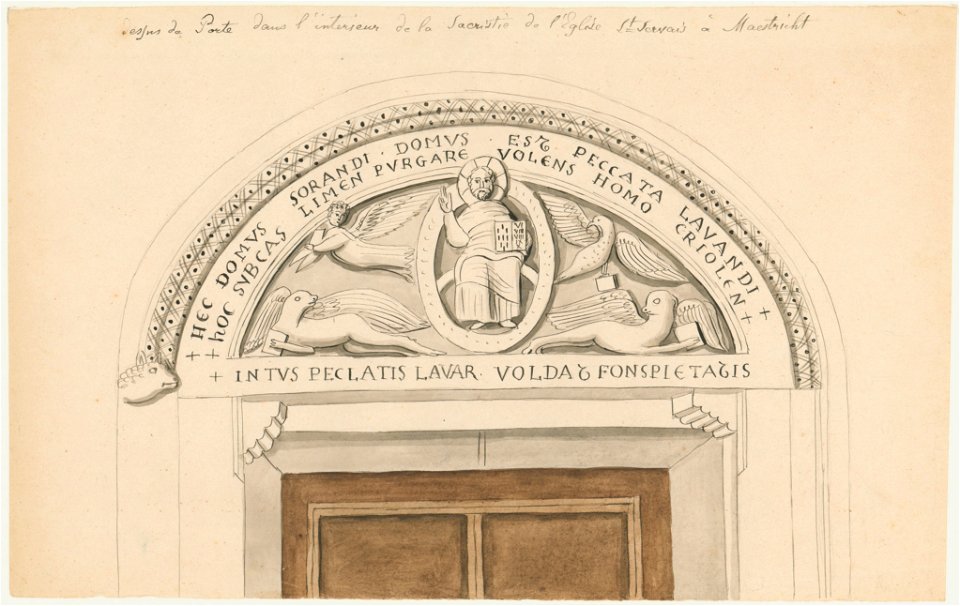 Dessus de Porte dans l'interieur de la Sacristie de l'Eglise St Servais à Maestricht
+ HEC DOMVS SORANDI · DOMVS EST PECCATA LAVANDI +
+ hOC SVBCAS LIMEN PVRGARE VOLENS HOMO CRIOLEN +
+ INTVS PECLATIS LAVAR · VOLDAT FONSPIETATIS